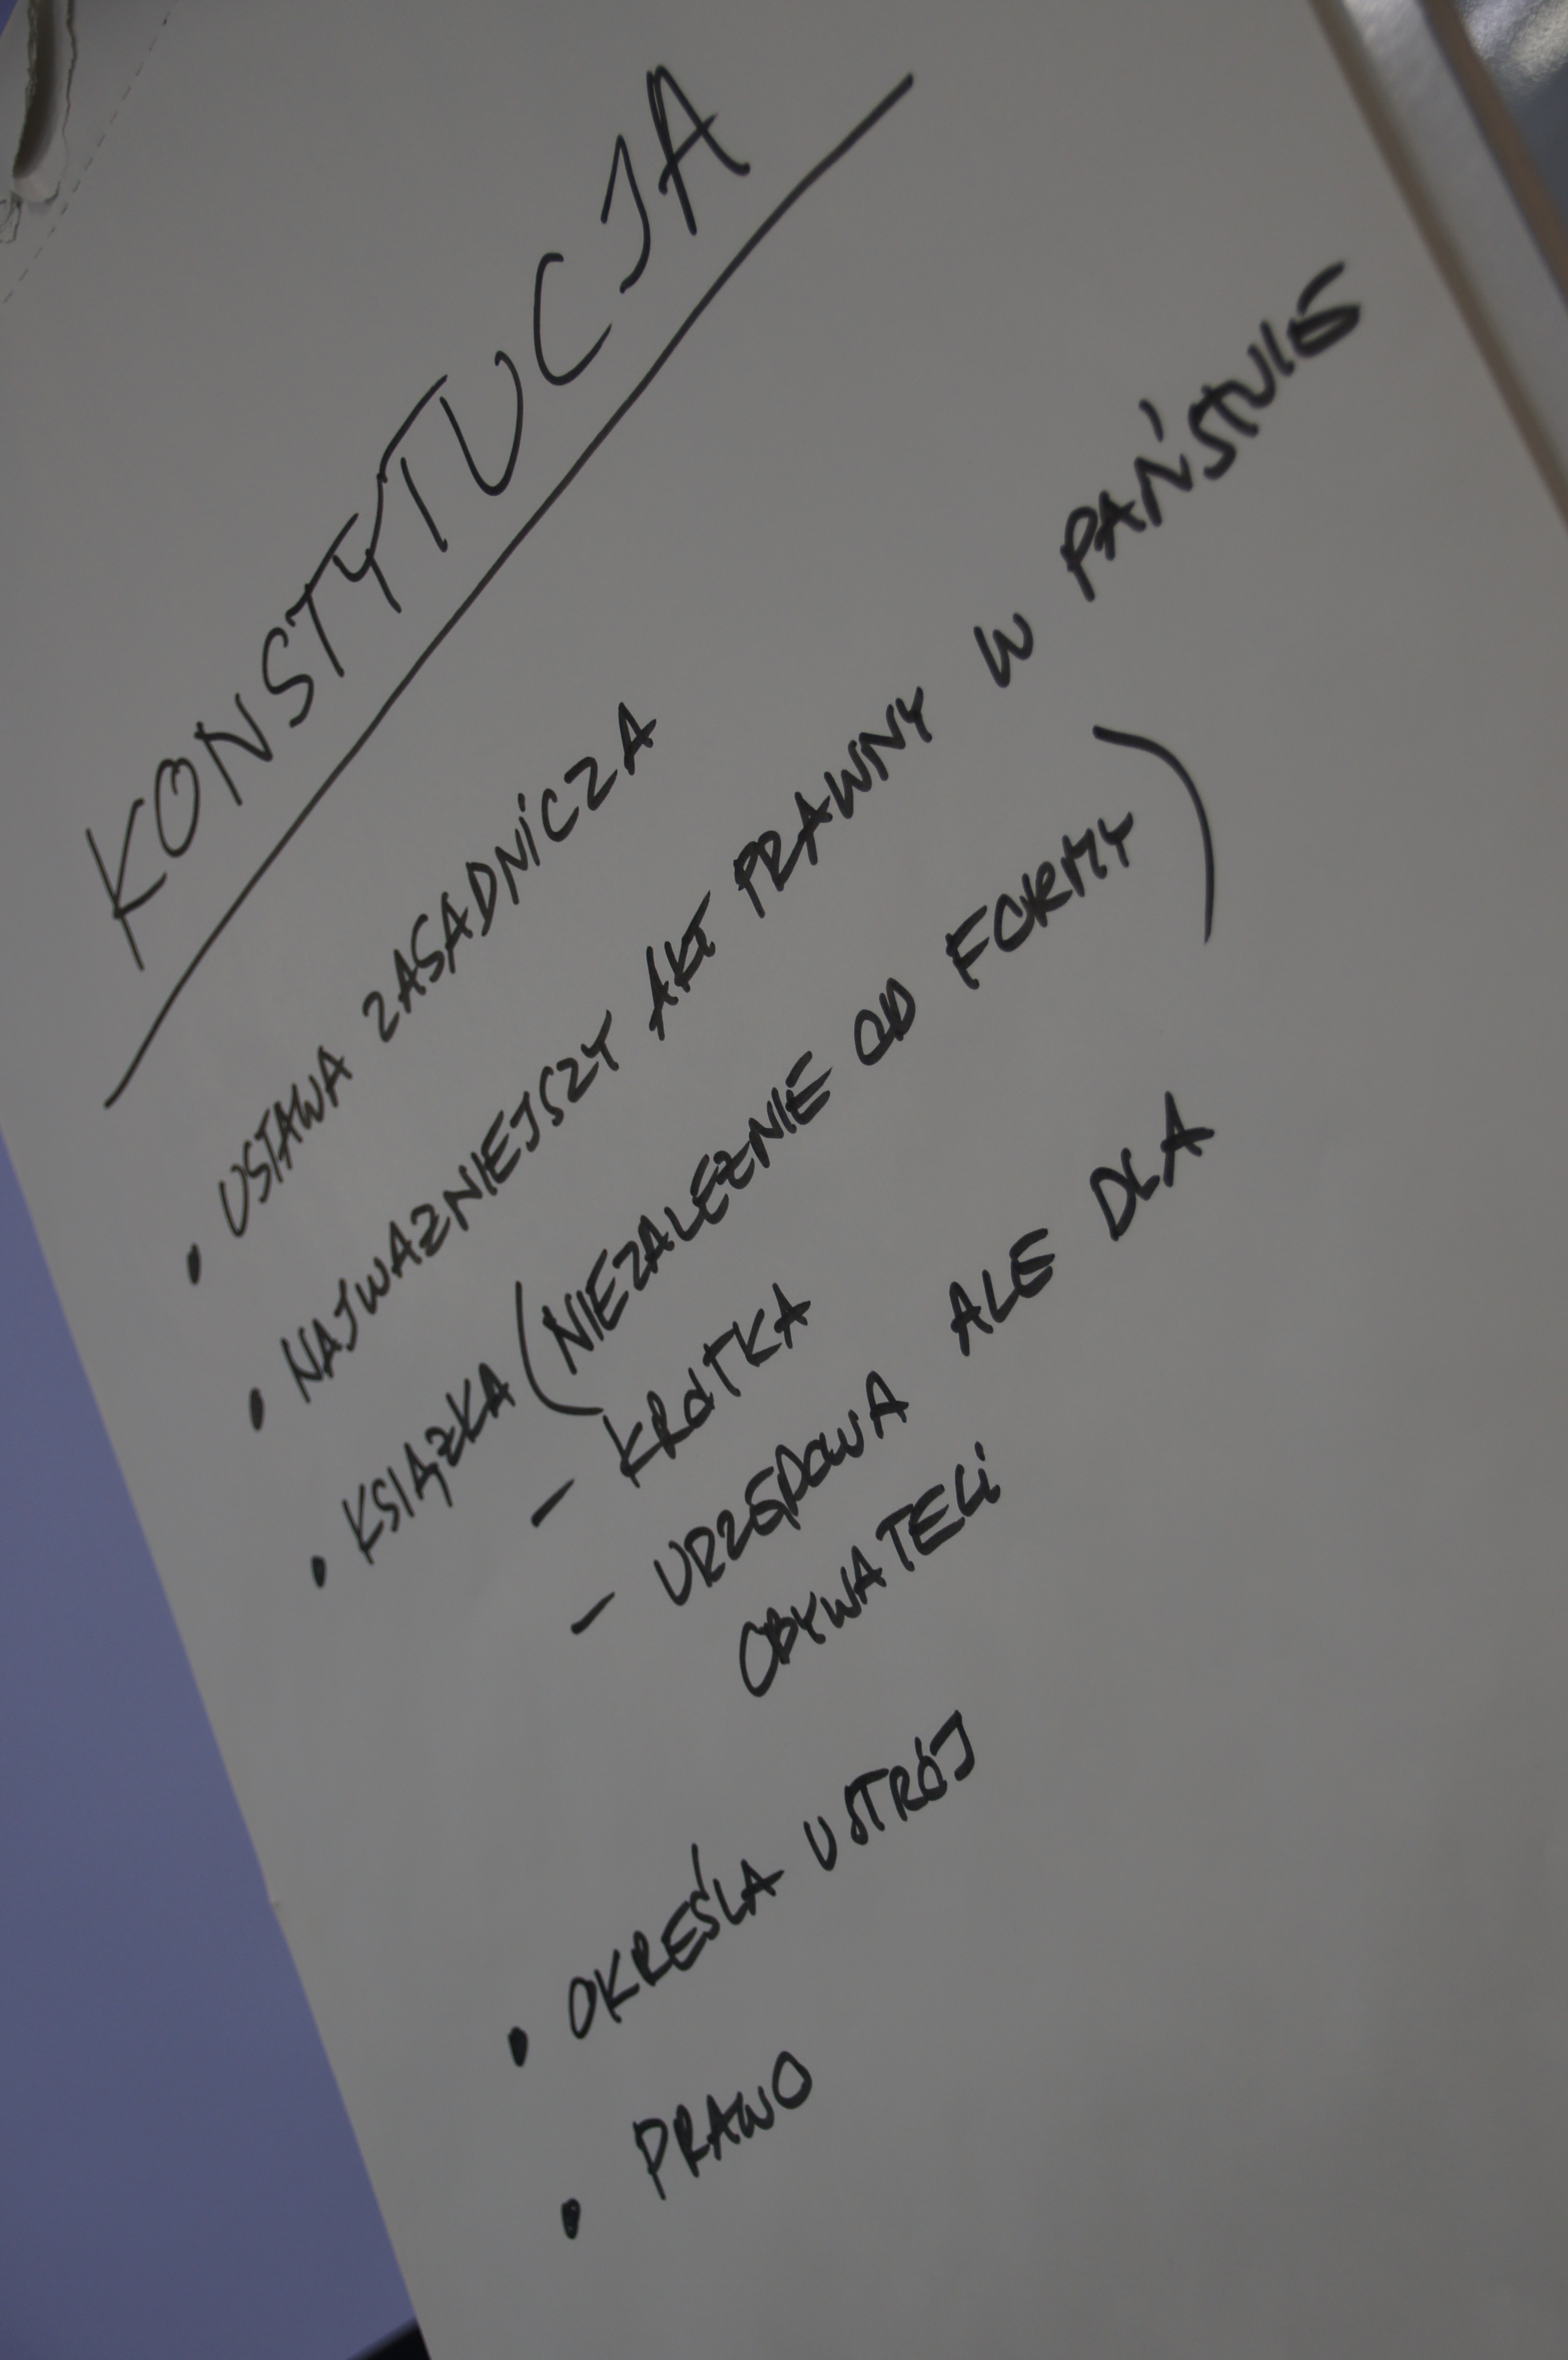 KONSTYTUCJA
• USTAWA ZASADNICZA
• NAJWAŻNIEJSZY AKT PRAWNY W PAŃSTWIE
• KSIĄŻKA (NIEZALEŻNIE OD FORMY)
- KRÓTKA
- URZĘDOWA ALE DLA
OBYWATELI
• OKREŚLA USTRÓJ
• PRAWO